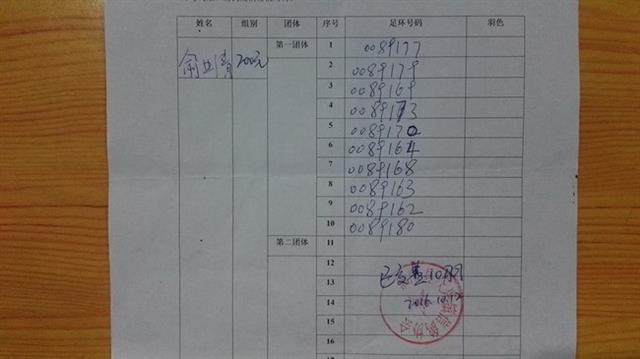 姓名 组别 团体 序号 足环号码 羽色
第一团体 1 0089177
200元 2 0089179
3 0089169
4 0089173
5 0089170
6 0089164
7 0089168
8 0089163
9 0089162
10 0089180
第二团体 11
12
13
2016.10.12
14
15
16